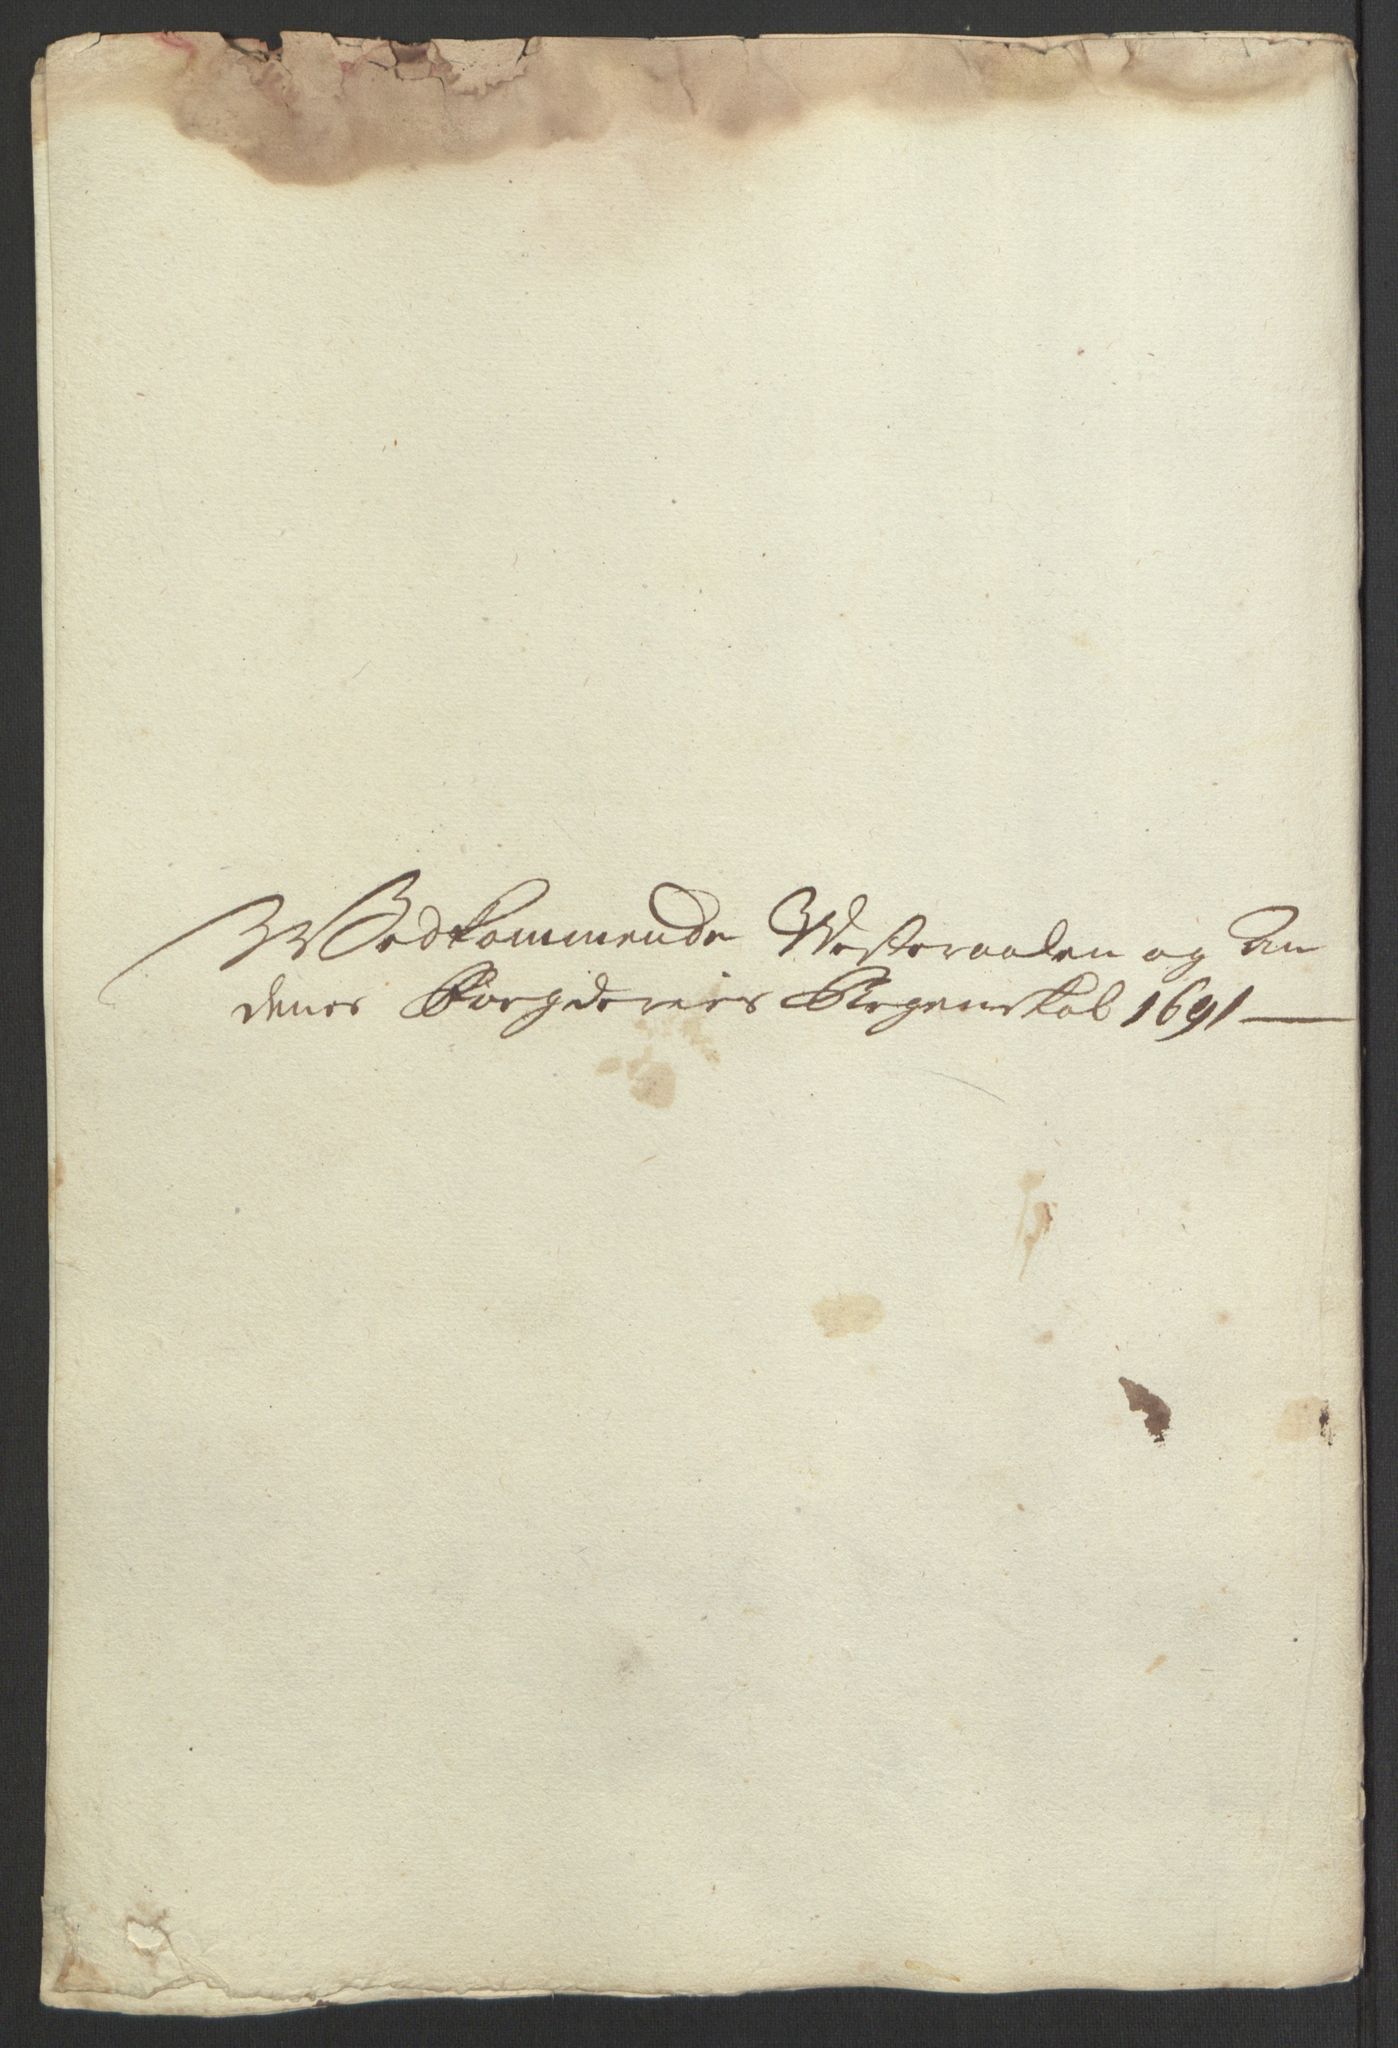 Wedkommende Westeraalen og An
denes Foegderies Regenskab 1691 —